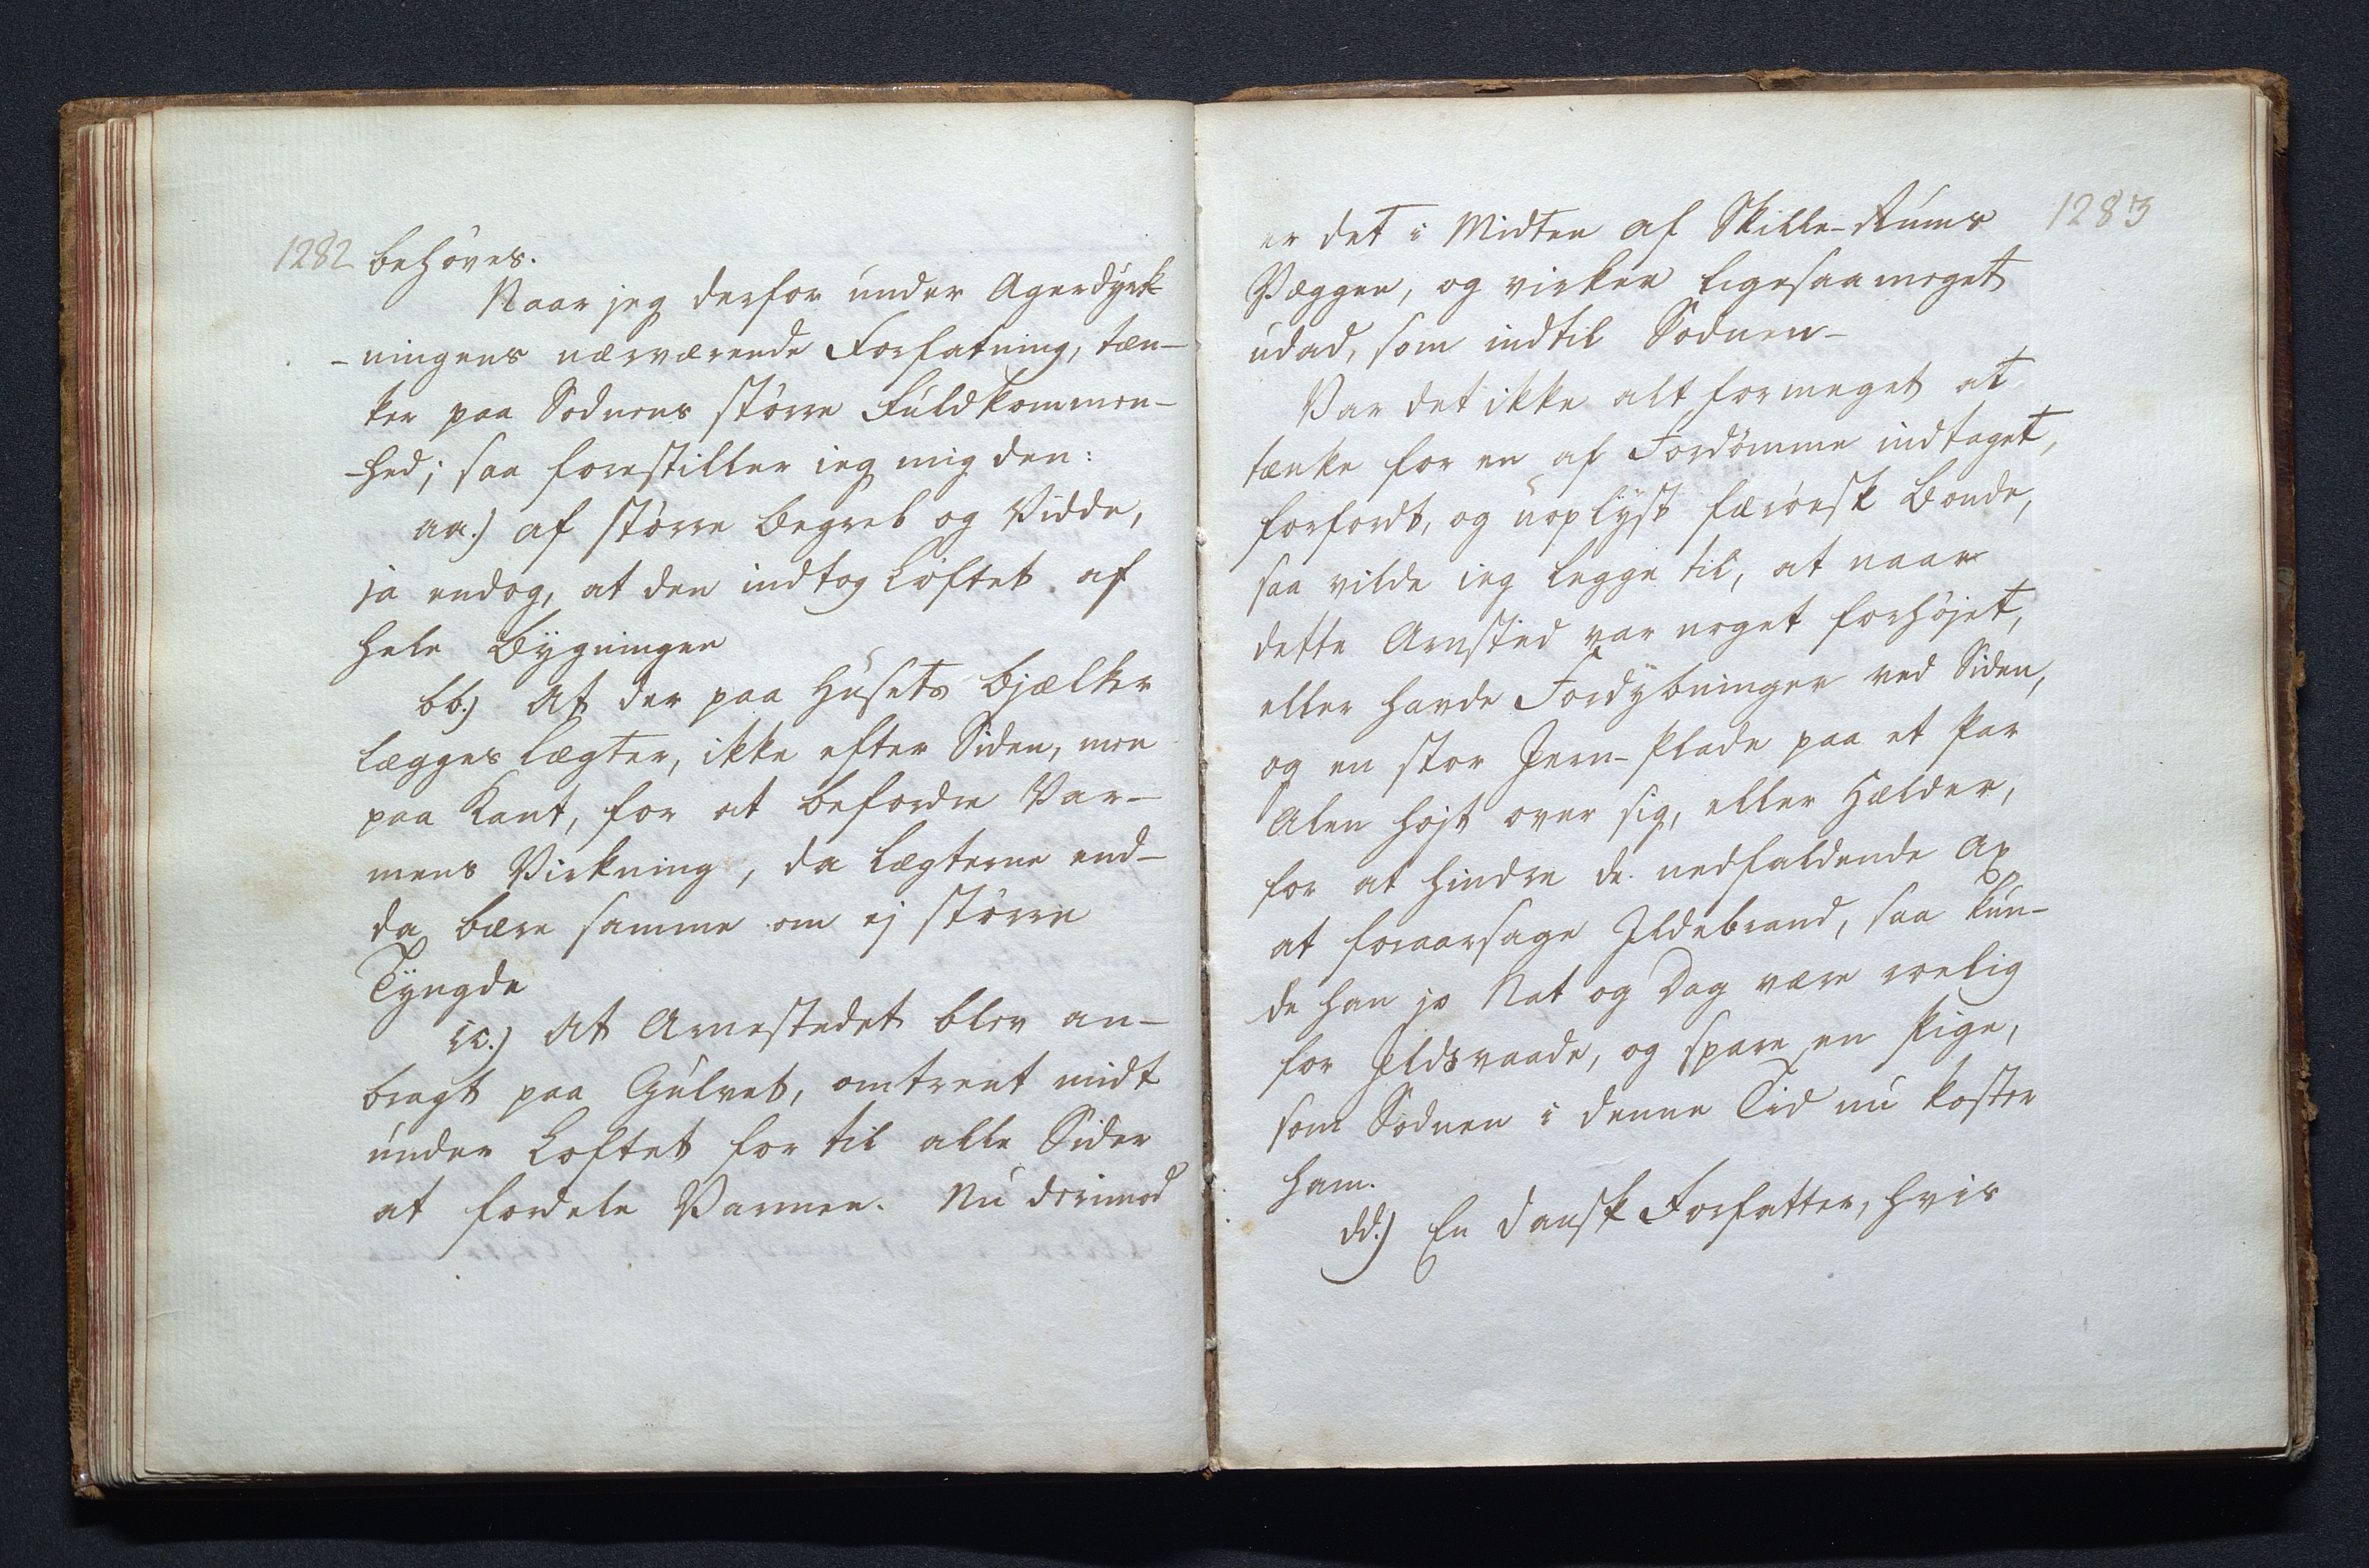 1282 behöves.
Naar jeg derfor under Agerdyrk-
-ningens nærværende Forfatning, tæn-
ker paa Sodnens större Fuldkommen-
-hed; saa forestiller jeg mig den:
aa.) af större Begreb og Vidde,
ja endog, at den indtog Loftet af
hele Bygningen
bb.) At der paa Husets Bjælker
lægges Lægter, ikke efter Siden, men
paa Kant, for at befordre Var-
mens Virkning, da Lægterne end-
da bære samme om ej större
Tyngde
cc.) At Arnestedet blev an-
bragt paa Gulvet, omtrent midt
under Loftet for til alle Sider
at fordele Varmen. Nu derimod
1283
er det i Midten af Skille-Rums
Væggen, og virker ligesaa meget
udad, som indtil Sodnen-
Var det ikke alt for meget at
tænke for en af Fordömme indtaget,
forfördt, og uoplyst færöesk Bonde,
saa vilde jeg legge til, at naar
dette Arnsted var noget forhöjet,
eller havde Fordybninger ved Siden,
og en stor Jern-Plade paa et Par
Alen höjt over sig, eller Hælder,
for at hindre de nedfaldende Ax
at foraarsage Ildebrand, saa kun-
de han jo Nat og Dag være roelig
for Ildsvaade, og spare en Pige,
som Sodnen i denne Tid nu koster
ham.
dd.) En dansk Forfatter, hvis